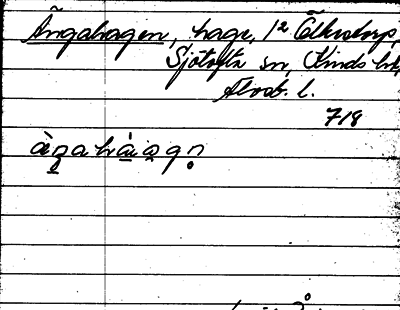 Ängahagen, hage, 1² Älkstorp,
Sjötofta sn, Kinds hd,
Älvsb. l.
718